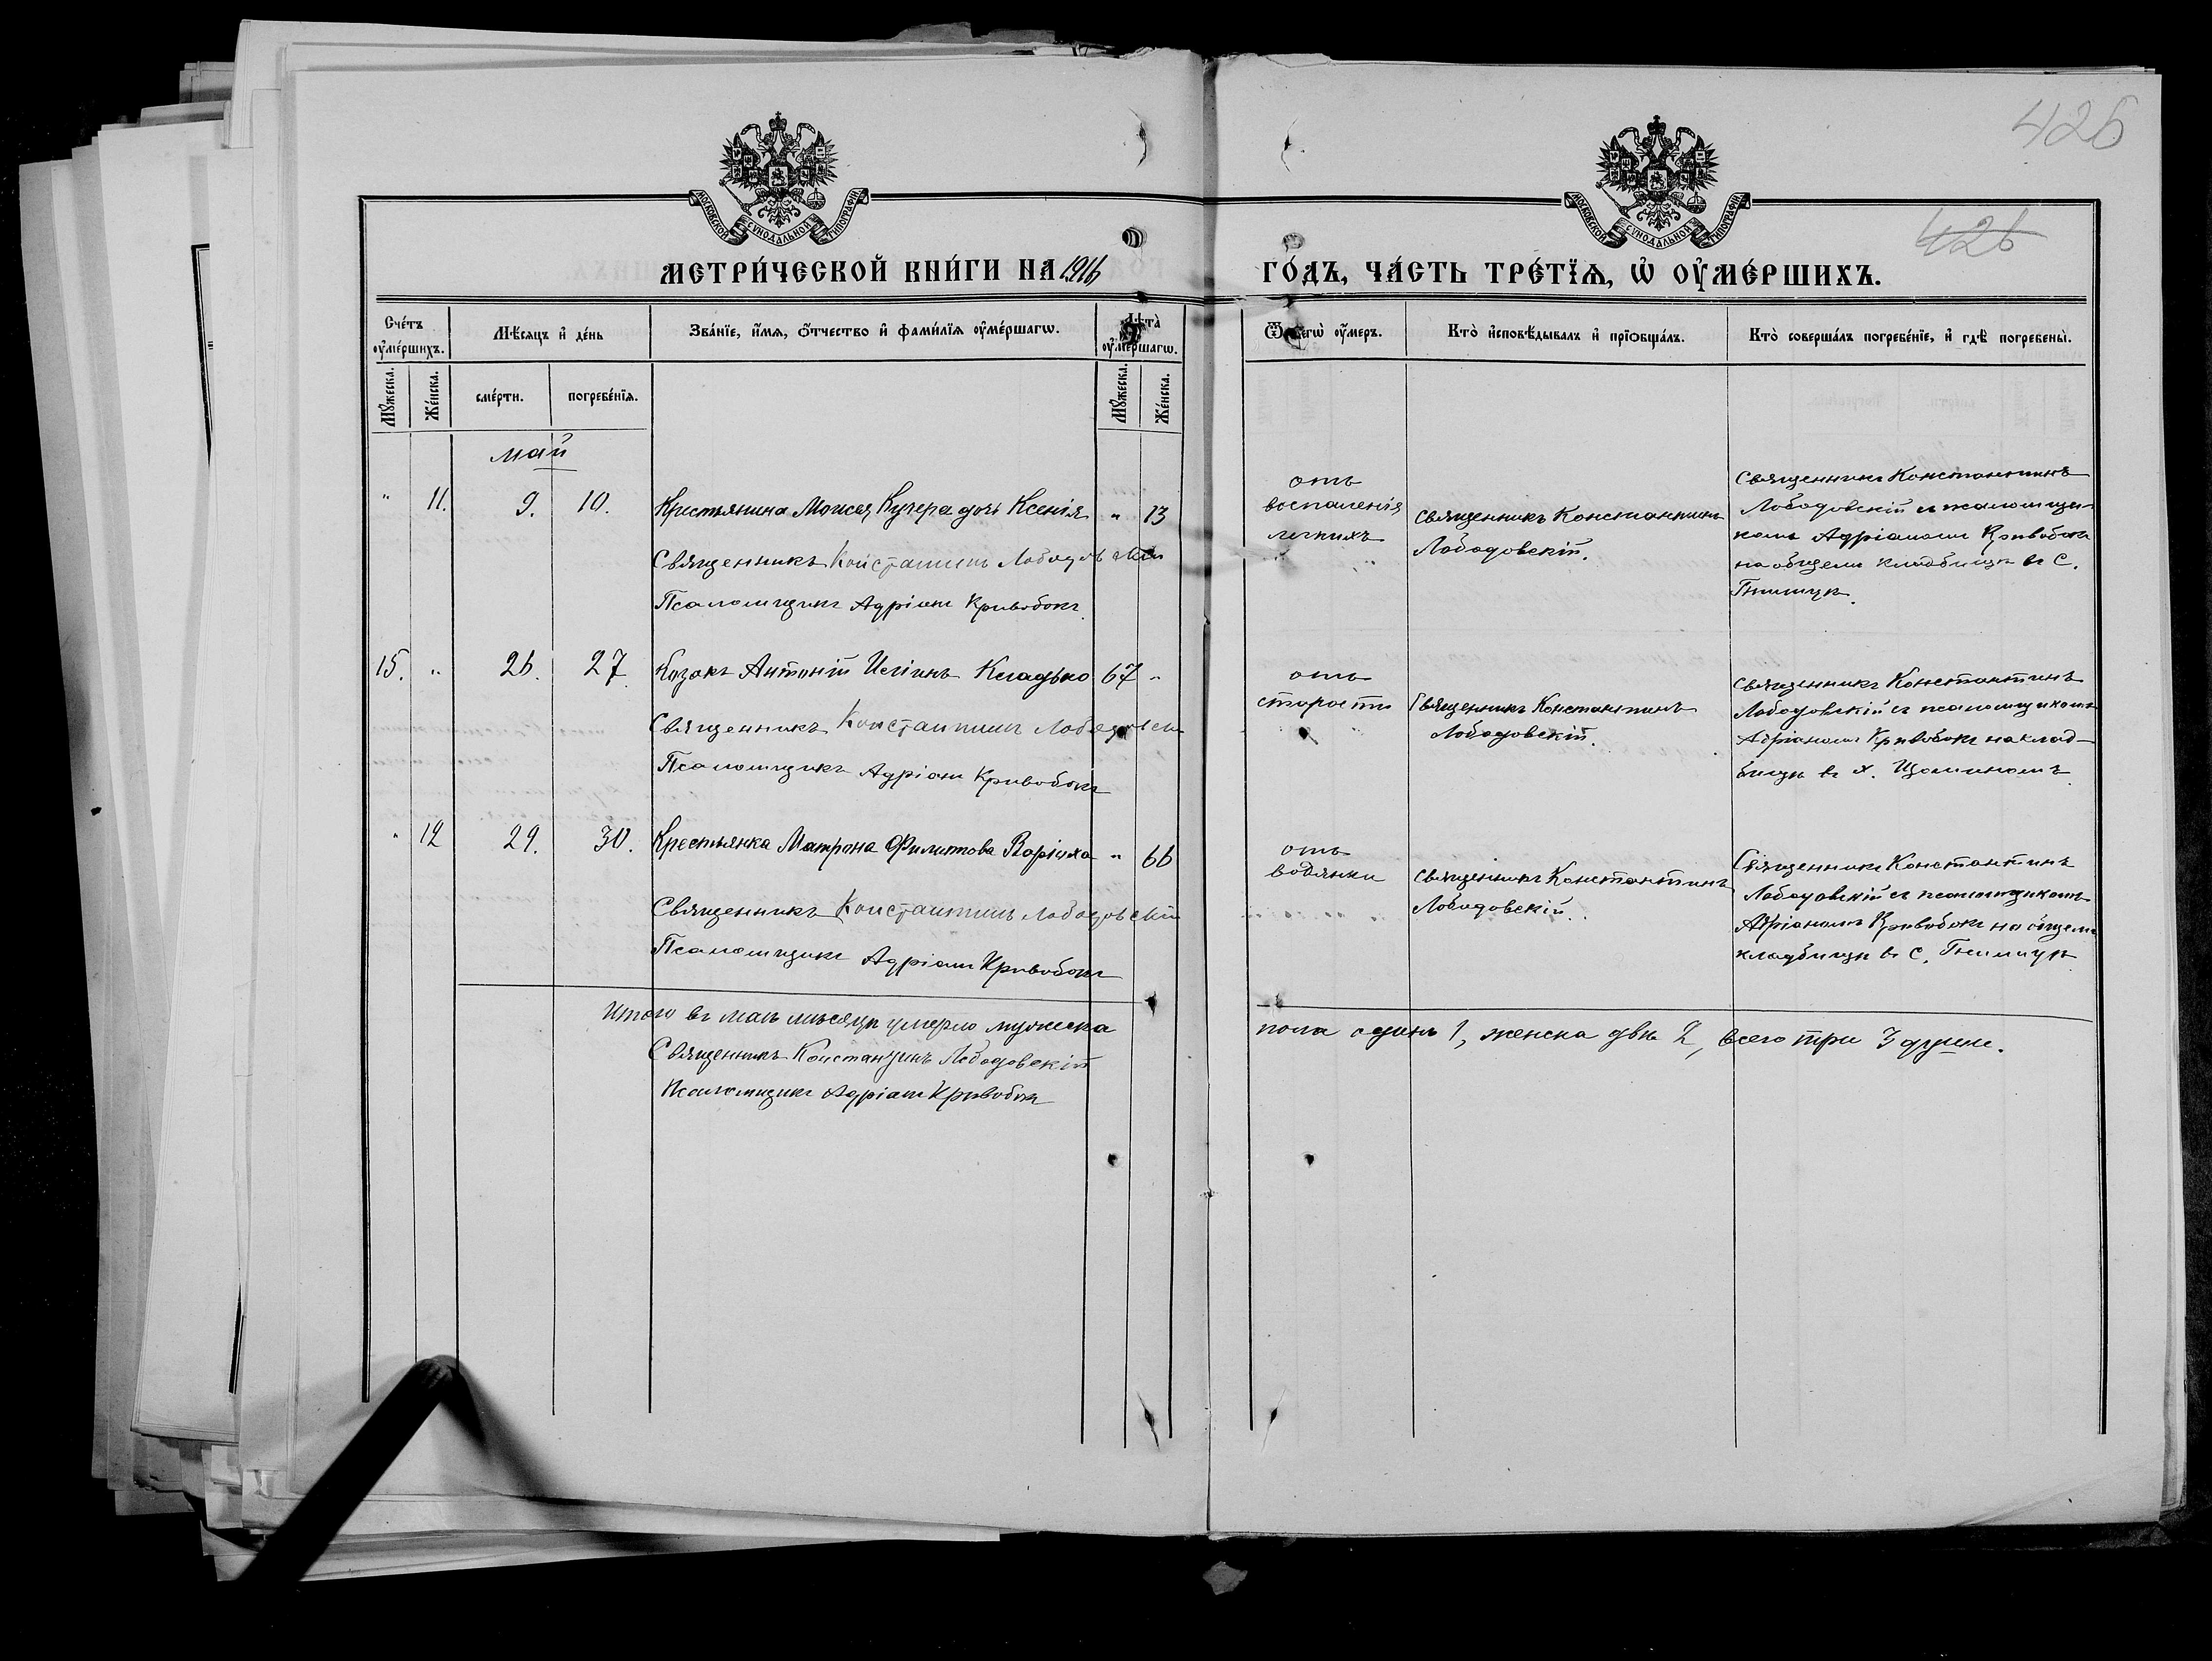 426
426
МОСКОВСКОЙ СѴНОДАЛЬНОЙ ТИПОГРАФІИ
МОСКОВСКОЙ СѴНОДАЛЬНОЙ ТИПОГРАФІИ
МЕТРИ́ЧЕСКОЙ КНИ́ГИ НА 1916
ГО́ДЪ, ЧА́СТЬ ТРЕ́ТЇѦ, Ѡ҆ ОУ҆МЕ́РШИХЪ.
Сче́тъ оу҆ме́ршихъ.
Мѣ́сяцъ и҆ де́нь
Зва́нїе, и҆́мя, ѻ҆́тчество и҆ фами́лїя оу҆ме́ршагѡ.
Лѣта̀ оу҆ме́ршагѡ.
Ѿ чегѡ̀ оу҆́меръ.
Кто̀ и҆сповѣ́дывалъ и҆ прїѻбща́лъ.
Кто̀ соверша́лъ погребе́нїе, и҆ гдѣ̀ погребены̀.
Мꙋ́жеска.
Же́нска.
сме́рти.
погребе́нїя.
Мꙋ́жеска.
Же́нска.
май
" 11. 9. 10. Крестьянина Моисея Кучера дочь Ксенія " 13
Священникъ Константинъ Лободовскій
Псаломщикъ Адріанъ Кривобокъ
отъ
воспаленія
легкихъ
Священникъ Константинъ
Лободовскій.
Священникъ Константинъ
Лободовскій съ псаломщи-
комъ Адріаномъ Кривобокъ
на общемъ кладбищѣ въ с.
15. " 26. 27. Козакъ Антоній Кладько 67 "
Священникъ Константинъ Лободовскій
Псаломщикъ Адріанъ Кривобокъ
отъ
старости
Священникъ Константинъ
Лободовскій.
Священникъ Константинъ
Лободовскій съ псаломщикомъ
Адріаномъ Кривобокъ на клад-
бищѣ въ х.
" 12 29. 30. Крестьянка Матрона Филиппова " 66
Священникъ Константинъ Лободовскій
Псаломщикъ Адріанъ Кривобокъ
отъ
водянки
Священникъ Константинъ
Лободовскій.
Священникъ Константинъ
Лободовскій съ псаломщикомъ
Адріаномъ Кривобокъ на общемъ
кладбищѣ въ с.
Итого въ маѣ мѣсяцѣ умерло мужеска
пола одинъ 1, женска двѣ 2, всего три 3 души.
Священникъ Константинъ Лободовскій
Псаломщикъ Адріанъ Кривобокъ